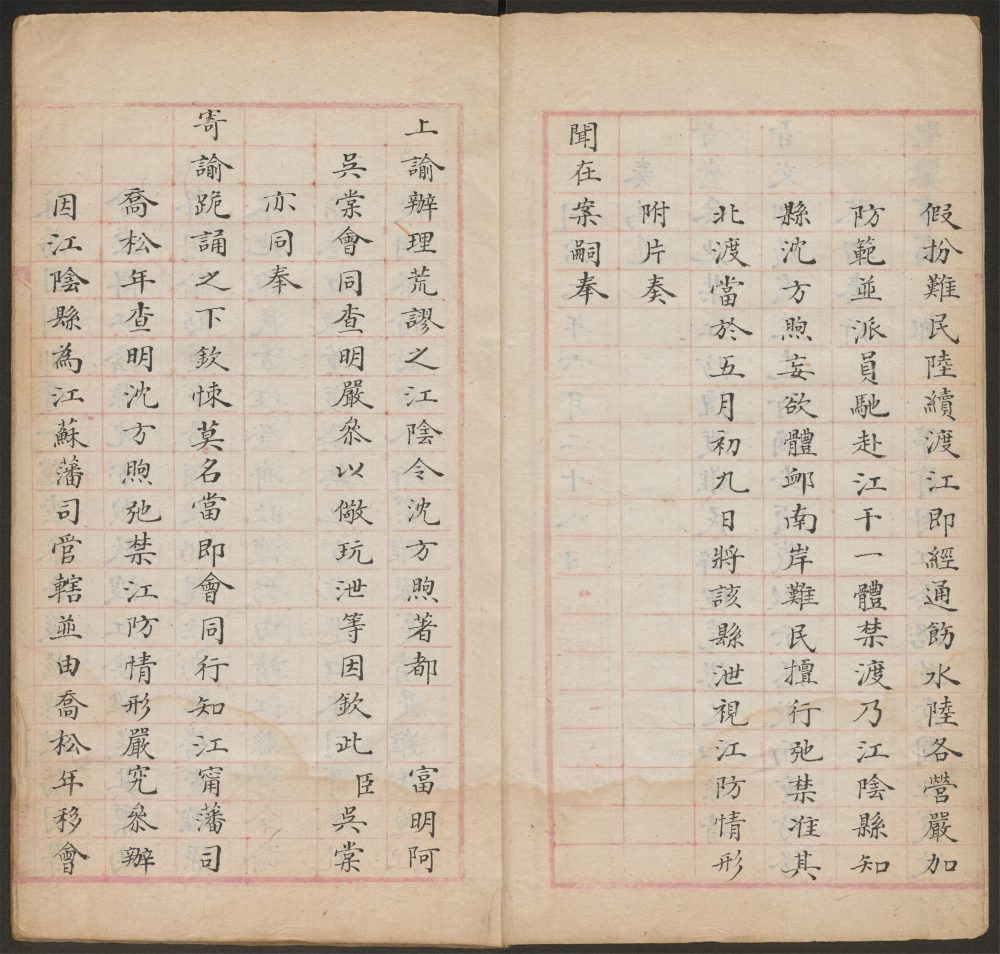 假扮難民陸續渡江即經通飭水陸各營嚴加
防範並派員馳赴江干一體禁渡乃江陰縣知
縣沈方煦妄欲體邺南岸難民擅行弛禁准其
北渡當於五月初九日將該縣泄視江防情形
附片奏
聞在案嗣奉
上諭辦理荒謬之江陰令沈方煦著都 富明阿
吳棠會同查明嚴叅以儆玩泄等因欽此 臣吳棠
亦同奉
寄諭跪誦之下欽悚莫名當即會同行知江甯藩司
喬松年查明沈方煦弛禁江防情形嚴究叅辦
因江陰縣為江蘇藩司管轄並由喬松年移會